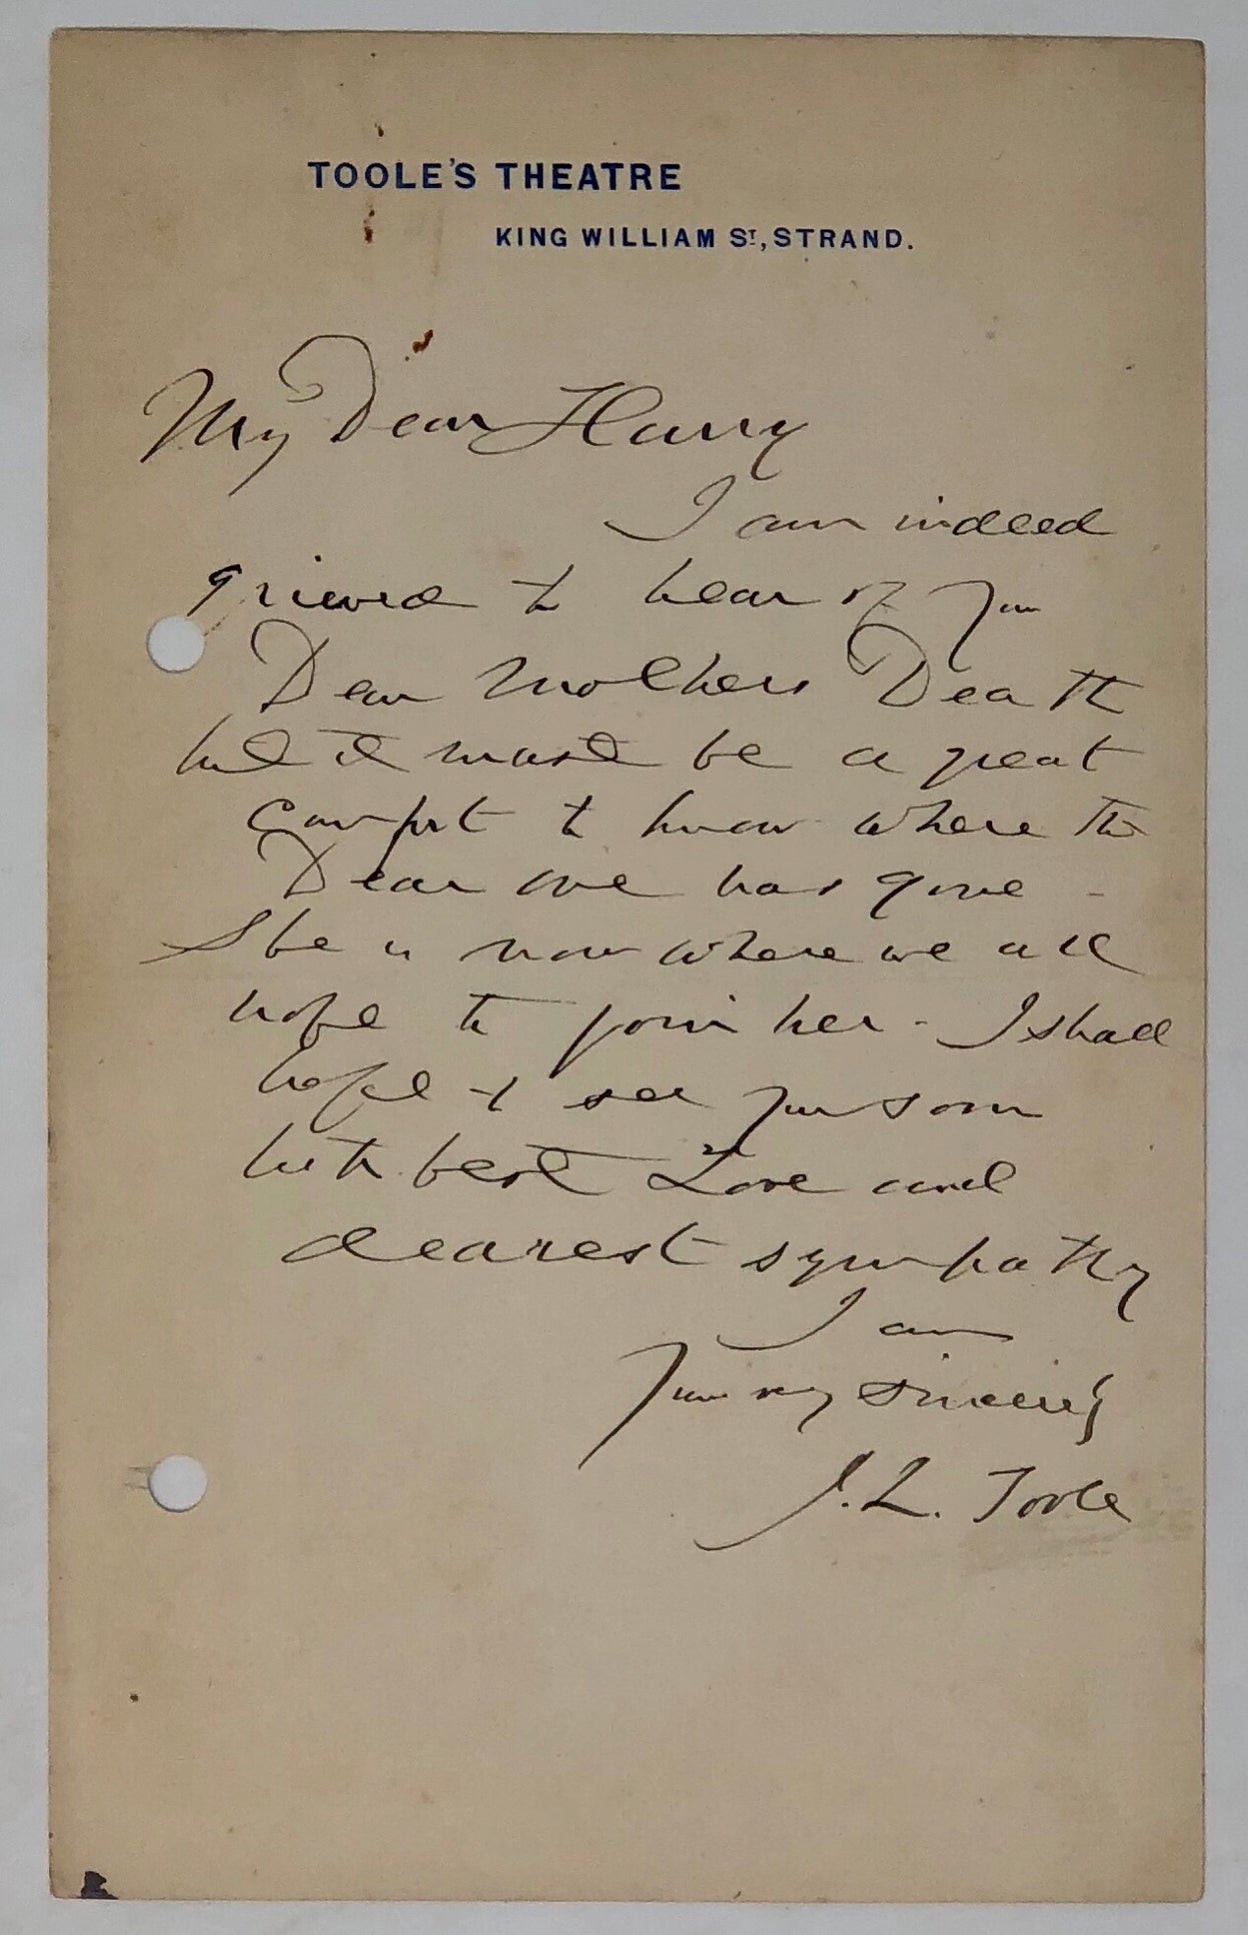 TOOLE'S THEATRE
KING WILLIAM ST, STRAND.
My Dear Harry
I am indeed
grieved to hear of your
Dear Mothers Death
but it must be a great
comfort to know where the
Dear one has gone -
She is now where we all
hope to join her - I shall
hope to see you soon
with best Love and
dearest sympathy
I am
Your very sincerely
J. L. Toole